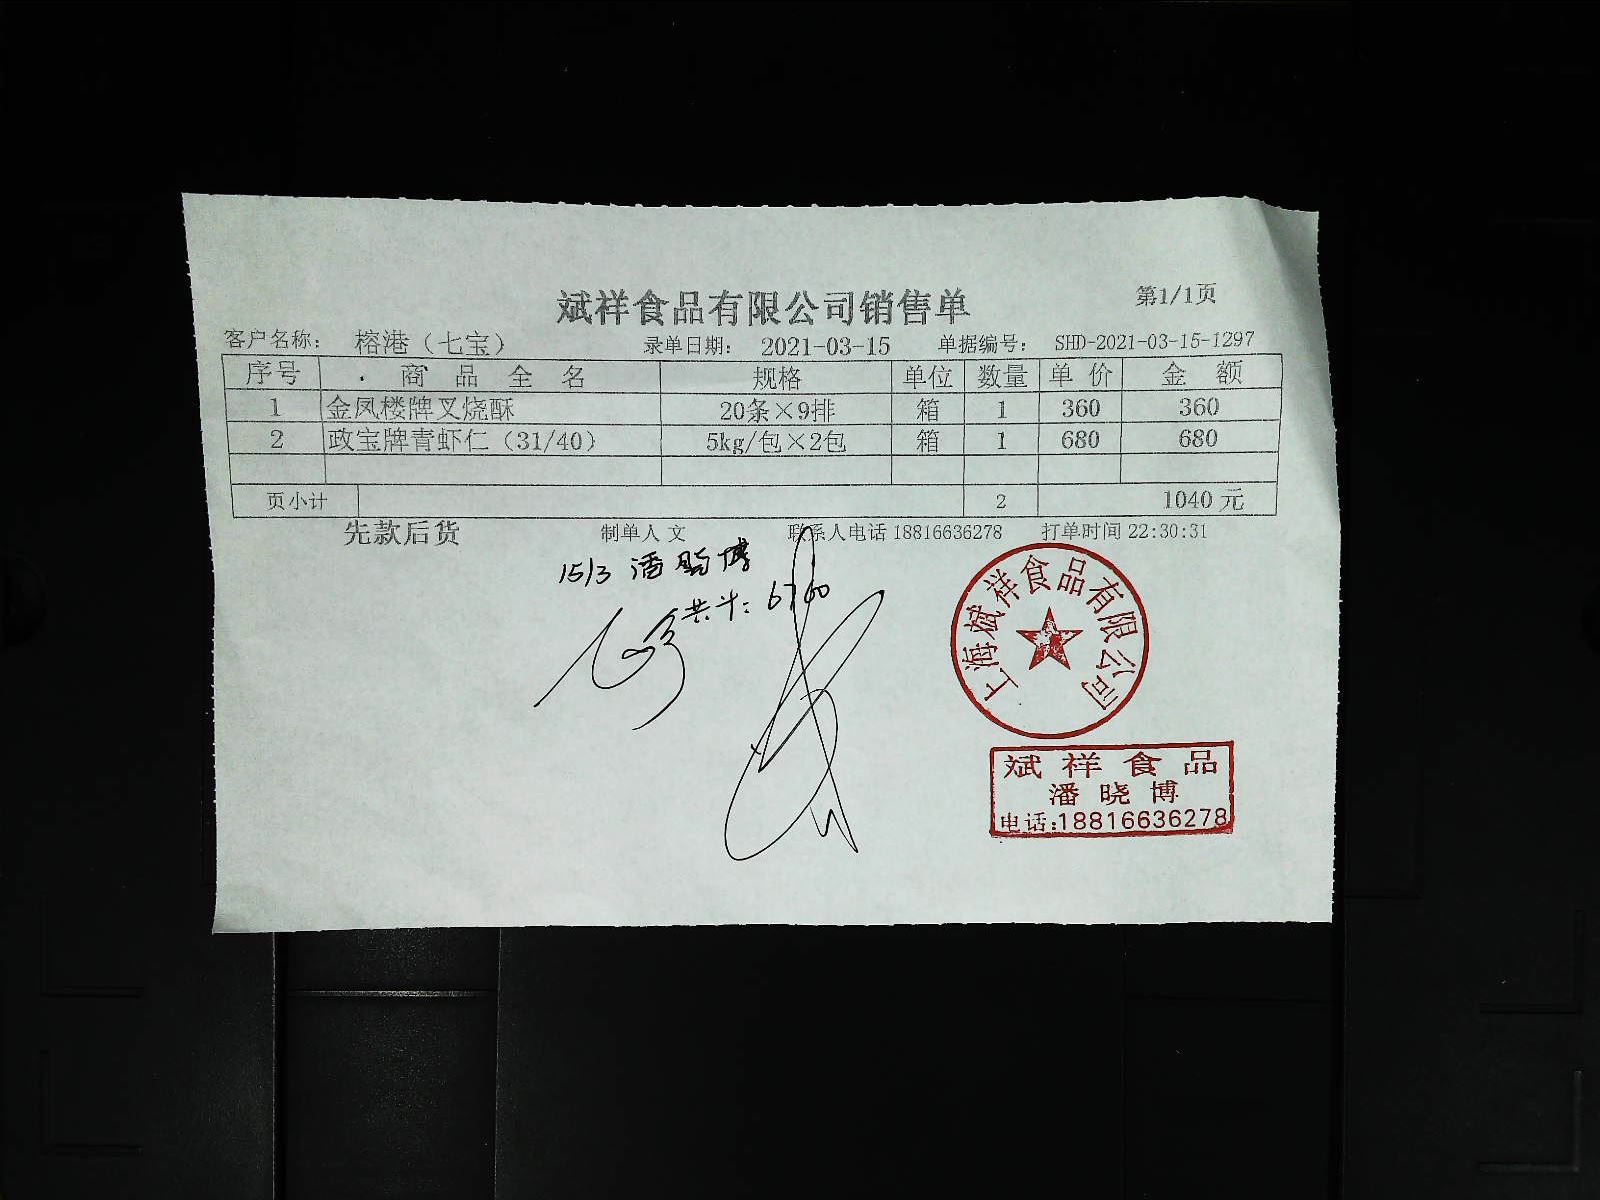 斌祥食品有限公司销售单
第1/1页
客户名称： 榕港（七宝） 录单日期： 2021-03-15 单据编号： SHD-2021-03-15-1297
序号 商品全名 规格 单位 数量 单价 金额
1 金凤楼牌叉烧酥 20条×9排 箱 1 360 360
2 政宝牌青虾仁（31/40） 5kg/包×2包 箱 1 680 680
页小计 2 1040 元
先款后货 制单人 文 联系人电话 18816636278 打单时间 22:30:31
15/3 潘晓博
共计: 6760
上海斌祥食品有限公司
斌祥食品
潘晓博
电话:18816636278